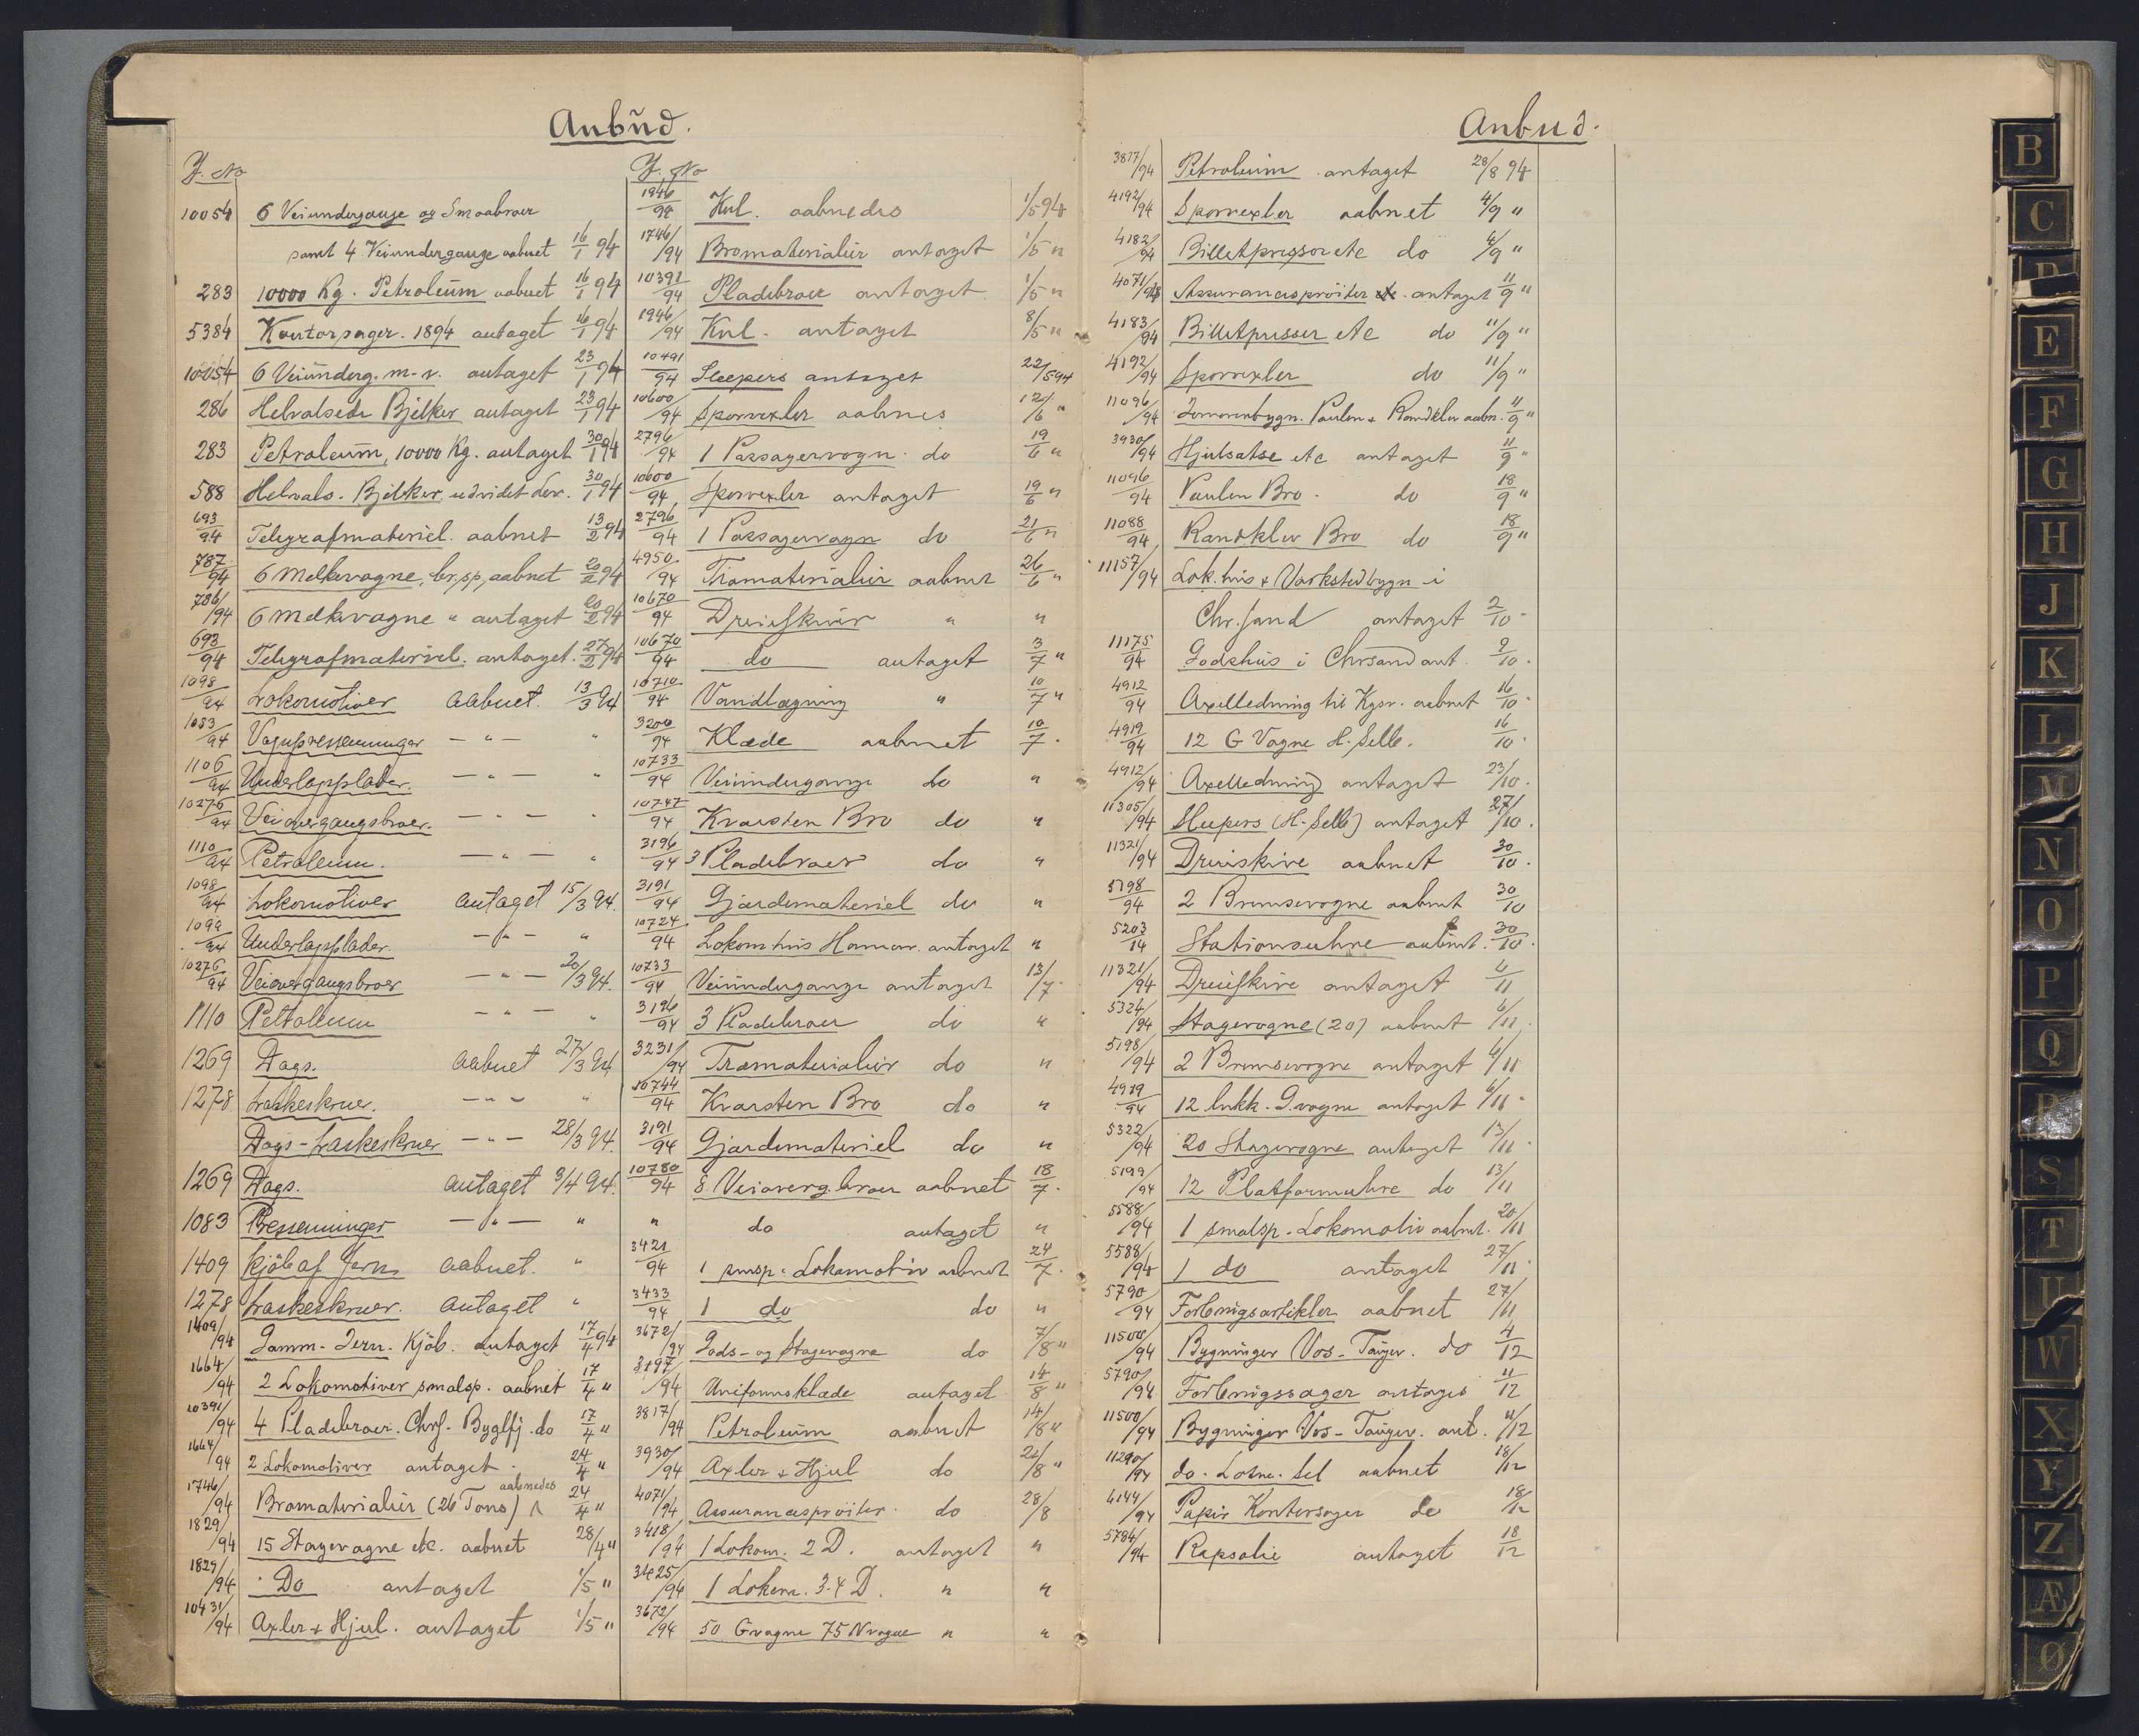 Anbud.
J. No
10054 6 Veiundergange og Smaabroer
samt 4 Veiundergange aabnet 16/1 94
283 10000 Kg. Petroleum aabnet 16/1 94
5384 Kontorsager. 1894 antaget 16/1 94
10054 6 Veiunderg. m. v. antaget 23/1 94
286 Helvalsede Bjelker antaget 23/1 94
283 Petroleum, 10000 Kg. antaget 30/1 94
588 Helvals. Bjelker, udvidet Lev. 30/1 94
693/94 Telegrafmateriel. aabnet 13/2 94
787/94 6 Melkevogne, br. sp, aabnet 20/2 94
786/94 6 Melkevogne " antaget 20/2 94
693/94 Telegrafmateriel. antaget. 27/2 94
1098/94 Lokomotiver aabnet. 13/3 94
1083/94 Vognpressenninger — " — "
1106/94 Underlagsplader. — " — "
10276/94 Veiovergangsbroer. — " — "
1110/94 Petroleum. — " — "
1098/94 Lokomotiver antaget 15/3 94.
1099/94 Underlagsplader. — " — "
10276/94 Veiovergangsbroer — " — 20/3 94.
1110 Petroleum — " — "
1269 Dogs. aabnet 27/3 94
1278 Laskeskruer. — " — "
Dogs - Laskeskruer — " — 28/3 94.
1269 Dogs. antaget 3/4 94.
1083 Pressenninger — " — "
1409 Kjöb af Jern aabnet. "
1278 Laskeskruer. antaget "
1409/94 Gamm. Jern. Kjöb. antaget 17/4 94
1664/94 2 Lokomotiver smalsp. aabnet 17/4 "
10391/94 4 Pladebroer. Chrs.- Byglfj. do 17/4 "
1664/94 2 Lokomotiver antaget. 24/4 "
1746/94 Bromaterialier (26 Tons) aabnedes 24/4 "
1829/94 15 Stagevogne etc. aabnet 28/4 "
1829/94 Do antaget 1/5 "
10431/94 Axler & Hjul. antaget 1/5 "
J. No
1946/94 Kul. aabnedes 1/5 94
1746/94 Bromaterialier antaget 1/5 "
10391/94 Pladebroer antaget 1/5 "
1946/94 Kul. antaget 8/5 "
10491/94 Sleepers antaget 22/5 94
10600/94 Sporvexler aabnes 12/6 "
2796/94 1 Passagervogn. do 19/6 "
10600/94 Sporvexler antaget 19/6 "
2796/94 1 Passagervogn do 21/6 "
4950/94 Træmaterialier aabnet 26/6 "
10670/94 Dreieskiver " "
10670/94 do antaget 3/7 "
10710/94 Vandlægning " 10/7 "
3200/94 Klæde aabnet 10/7.
10733/94 Veiundergange do "
10747/94 Kvarsten Bro do "
3196/94 3 Pladebroer do "
3191/94 Gjærdemateriel do "
10724/94 Lokomhus Hamar. antaget "
10733/94 Veiundergange antaget 13/7
3196/94 3 Pladebroer do "
3231/94 Træmaterialier do "
10744/94 Kvarsten Bro do "
3191/94 Gjærdemateriel do "
10780/94 8 Veioverg. broer aabnet 18/7.
" do antaget "
3421/94 1 smsp. Lokomotiv aabnet 24/7.
3433/94 1 do do "
3672/94 Gods- og Stagevogne do 7/8 "
3197/94 Uniformsklæde antaget 14/8 "
3817/94 Petroleum aabnet 14/8 "
3930/94 Axler & Hjul do 21/8 "
4071/94 Assurancespröiter. do 28/8
3418/94 1 Lokom. 2 D. antaget "
3425/94 1 Lokom. 3.4 D. " "
3672/94 50 Gvogne 75 Nvogne " "
Anbud.
3817/94 Petroleum antaget 28/8 94
4192/94 Sporvexler aabnet 4/9 "
4182/94 Billetpresser etc do 4/9 "
4071/94 Assurancespröiter etc. antaget 11/9 "
4183/94 Billetpresser etc do 11/9 "
4192/94 Sporvexler do 11/9 "
11096/94 Paulen & Randklev aabn. 11/9 "
3930/94 Hjulsatse etc antaget 11/9 "
11096/94 Paulen Bro. do 18/9 "
11088/94 Randklev Bro do 18/9 "
11157/94 Lok. hus & Værkstedbygn i
Chr.sand antaget 2/10
11175/94 Godshus i Chrsand ant. 9/10.
4912/94 Axelledning til Kgsv. aabnet 16/10
4919/94 12 G Vogne H. Selb. 16/10
4912/94 Axelledning antaget 23/10.
11305/94 Sleepers (H. Selb) antaget 27/10.
11321/94 Dreieskive aabnet 30/10.
5198/94 2 Bremsevogne aabnet 30/10
5203/14 Stationsuhre aabnet. 30/10.
11321/94 Dreieskive antaget 6/11
5324/94 Stagevogne (20) aabnet 6/11.
5198/94 2 Bremsevogne antaget 6/11
4919/94 12 lukk. G.vogne antaget 6/11.
5322/94 20 Stagevogne antaget 13/11.
5199/94 12 Platformuhre do 13/11
5588/94 1 smalsp. Lokomotiv aabnet. 20/11
5588/94 1 do antaget 27/11
5790/94 Forbrugsartikler aabnet 27/11
11500/94 Bygninger Vos-Taugev. do 4/12
5790/94 Forbrugssager antaget 11/12
11500/94 Bygninger Vos-Taugev. ant. 11/12
11290/94 do. Lotne. Sel aabnet 18/12
4144/94 Papir Kontorsager do 18/12
5784/94 Rapsolie antaget 18/12
B
C
D
E
F
G
H
J
K
L
M
N
O
P
Q
R
S
T
U
W
X
Y
Z
Æ
Ø